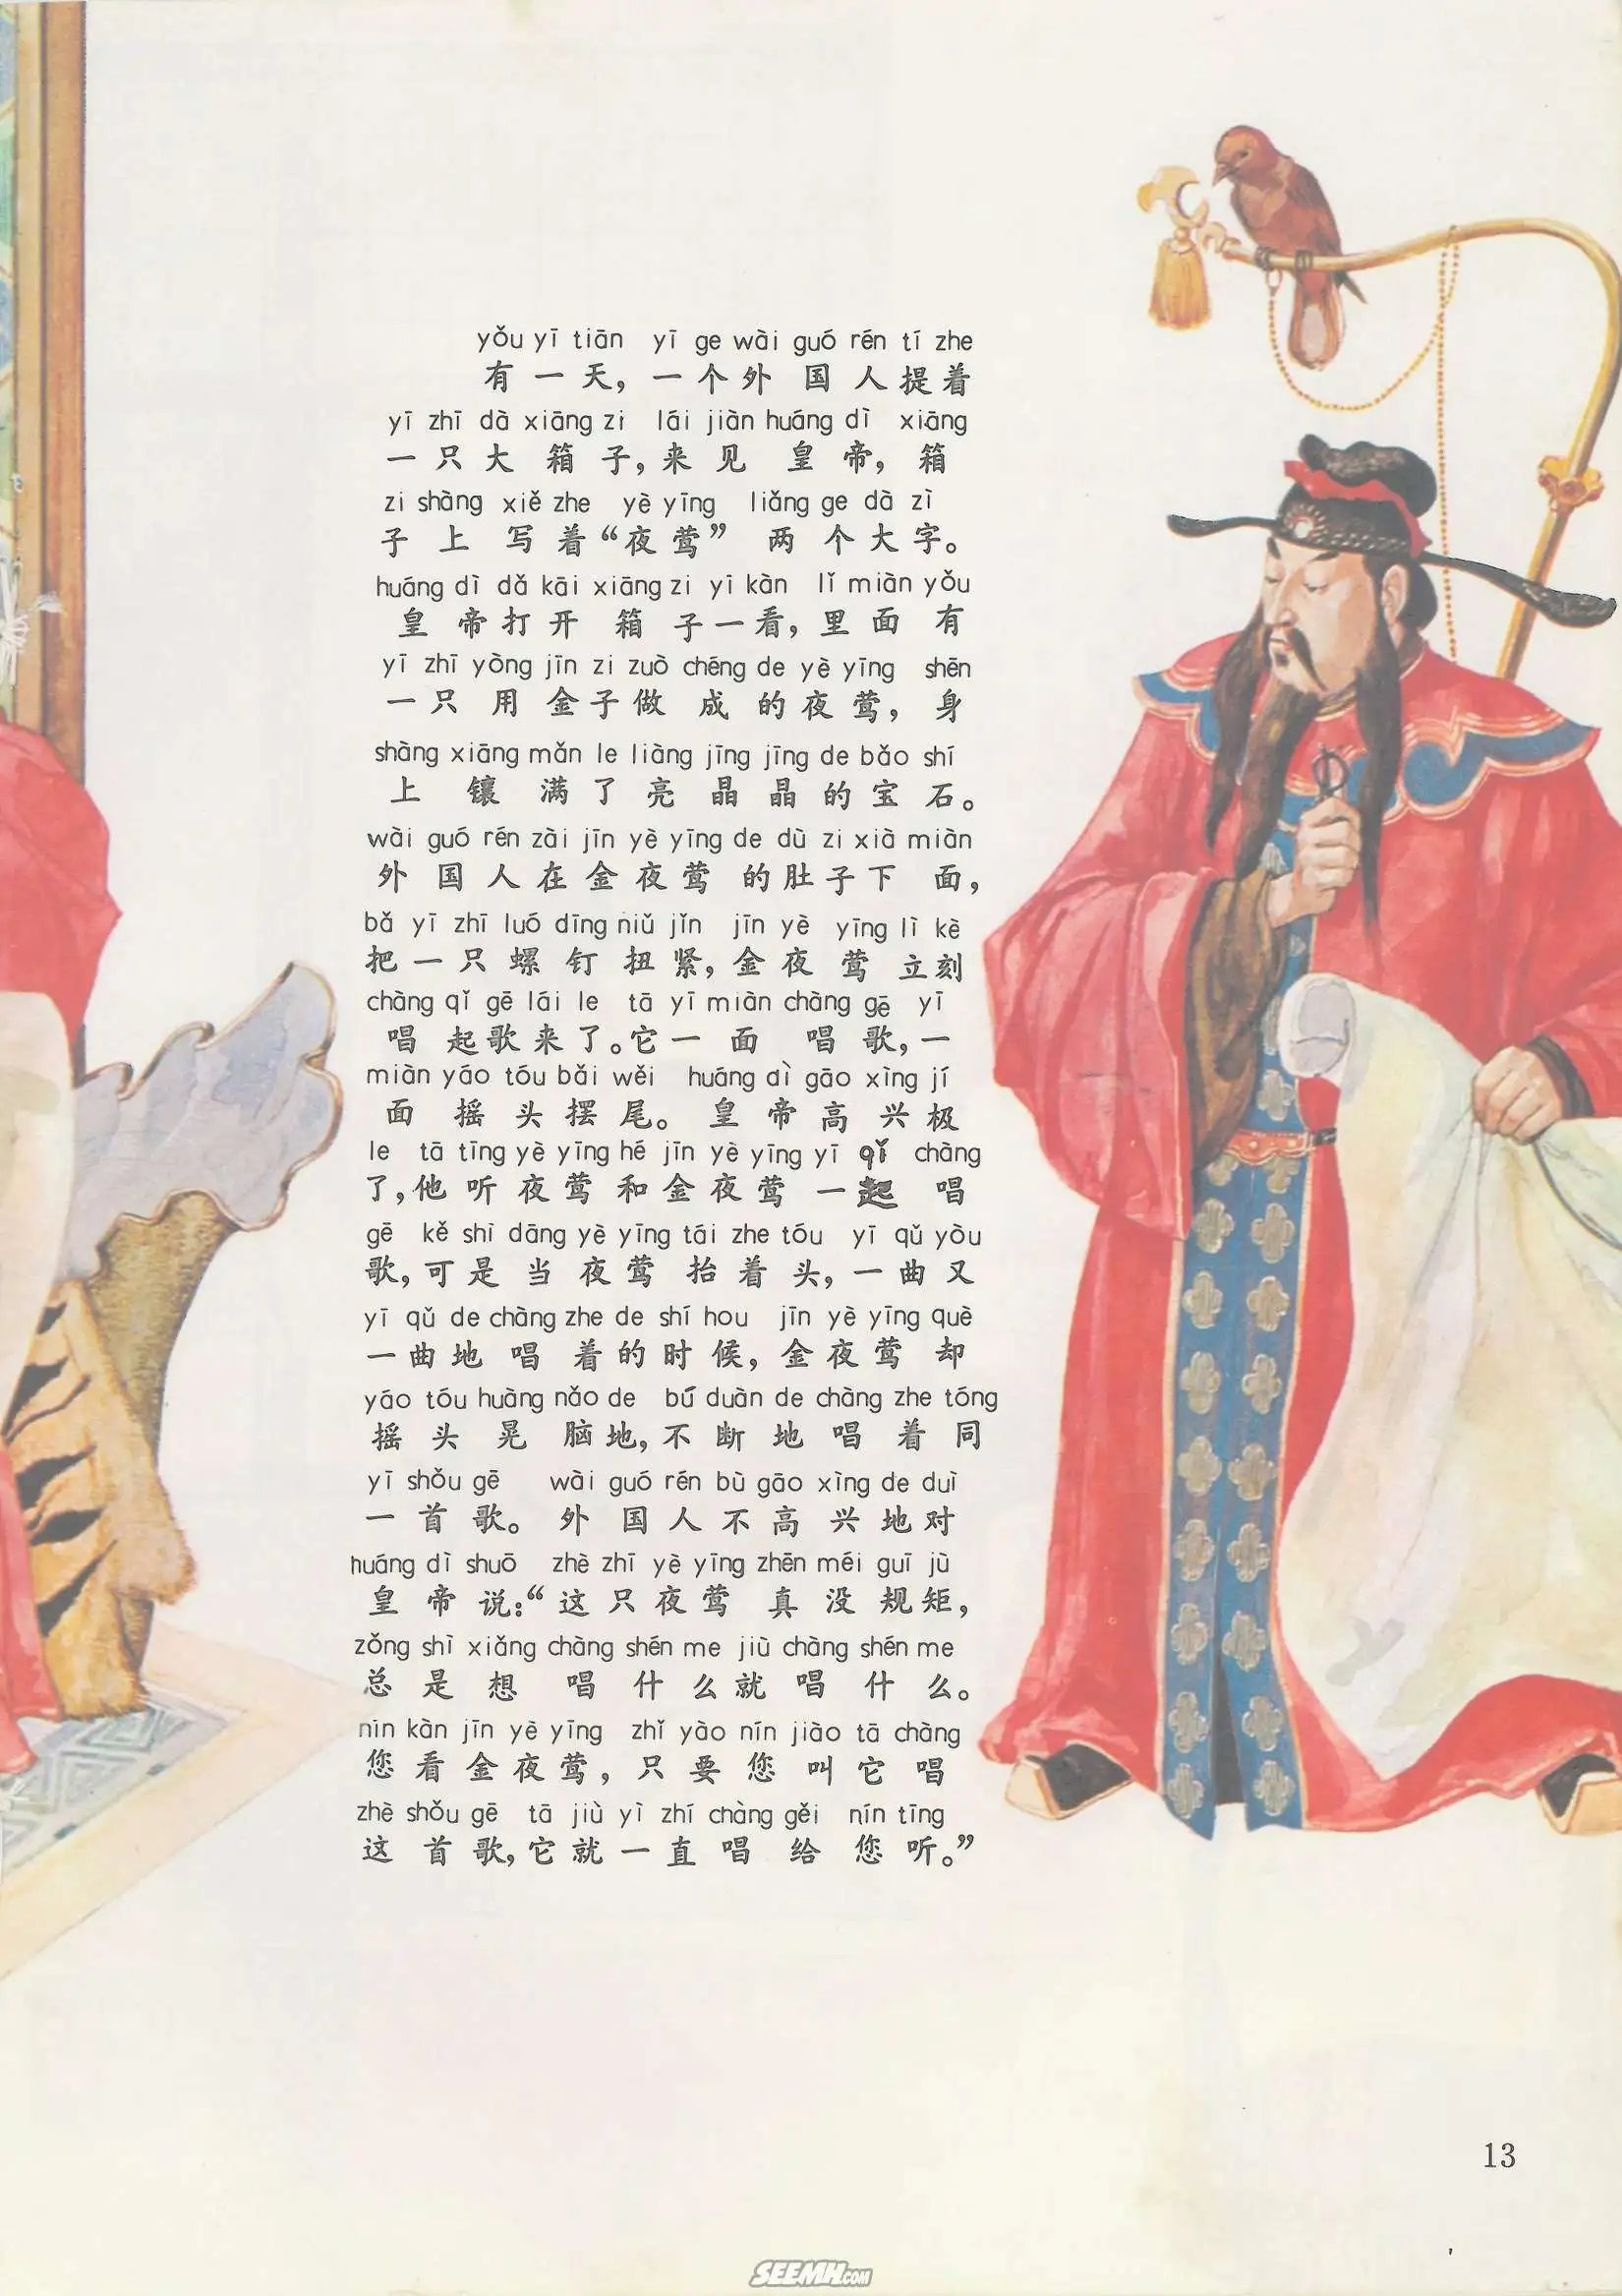 yǒu yī tiān yī ge wài guó rén tí zhe
有一天，一个外国人提着
yī zhī dà xiāng zi lái jiàn huáng dì xiāng
一只大箱子，来见皇帝，箱
zi shàng xiě zhe yè yīng liǎng ge dà zì
子上写着“夜莺”两个大字。
huáng dì dǎ kāi xiāng zi yī kàn lǐ miàn yǒu
皇帝打开箱子一看，里面有
yī zhī yòng jīn zi zuò chéng de yè yīng shēn
一只用金子做成的夜莺，身
shàng xiāng mǎn le liàng jīng jīng de bǎo shí
上镶满了亮晶晶的宝石。
wài guó rén zài jīn yè yīng de dù zi xià miàn
外国人在金夜莺的肚子下面，
bǎ yī zhī luó dīng niǔ jǐn jīn yè yīng lì kè
把一只螺钉扭紧，金夜莺立刻
chàng qǐ gē lái le tā yī miàn chàng gē yī
唱起歌来了。它一面唱歌，一
miàn yáo tóu bǎi wěi huáng dì gāo xìng jí
面摇头摆尾。皇帝高兴极
le tā tīng yè yīng hé jīn yè yīng yī qǐ chàng
了，他听夜莺和金夜莺一起唱
gē kě shì dāng yè yīng tái zhe tóu yī qǔ yòu
歌，可是当夜莺抬着头，一曲又
yī qǔ de chàng zhe de shí hou jīn yè yīng què
一曲地唱着的时候，金夜莺却
yáo tóu huàng nǎo de bú duàn de chàng zhe tóng
摇头晃脑地，不断地唱着同
yī shǒu gē wài guó rén bù gāo xìng de duì
一首歌。外国人不高兴地对
huáng dì shuō zhè zhī yè yīng zhēn méi guī jù
皇帝说：“这只夜莺真没规矩，
zǒng shì xiǎng chàng shén me jiù chàng shén me
总是想唱什么就唱什么。
nín kàn jīn yè yīng zhǐ yào nín jiào tā chàng
您看金夜莺，只要您叫它唱
zhè shǒu gē tā jiù yì zhí chàng gěi nín tīng
这首歌，它就一直唱给您听。”
13
SEEMH.COM